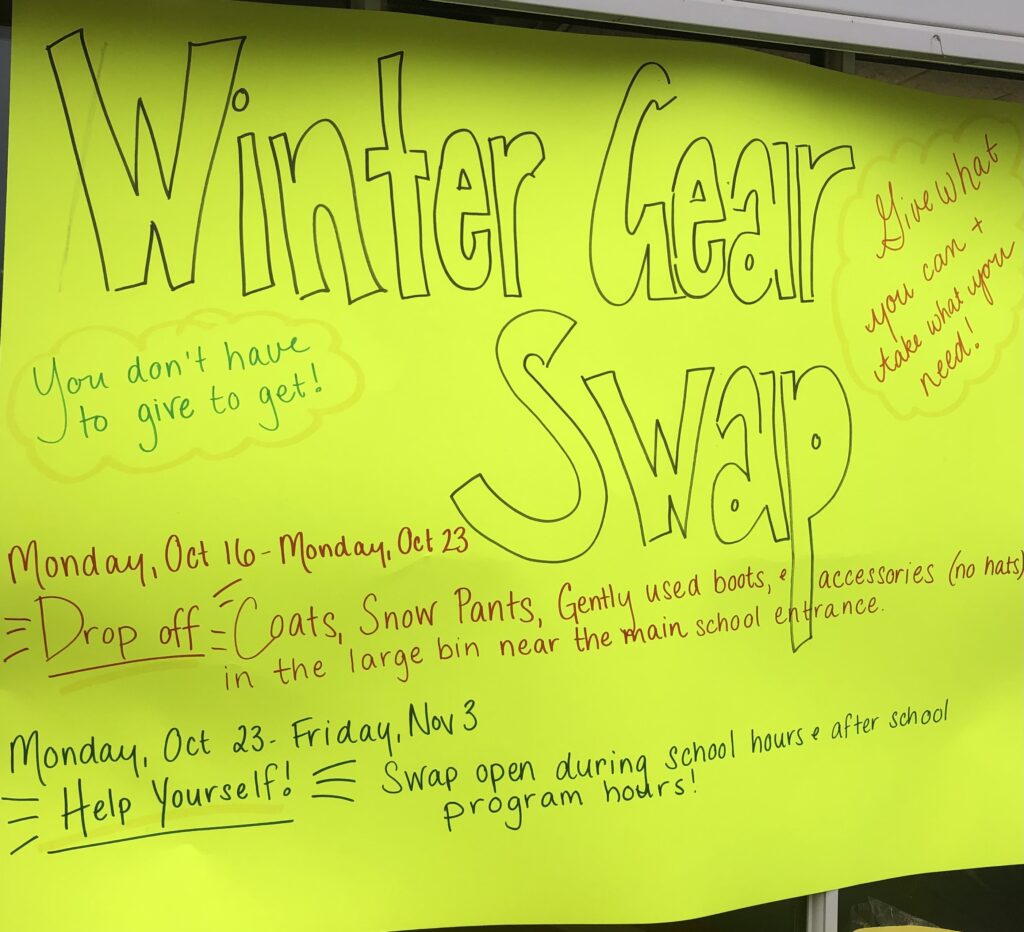 Winter Gear
Swap
Give what
you can +
take what you
need!
You don't have
to give to get!
Monday, Oct 16 - Monday, Oct 23
Drop off Coats, Snow Pants, Gently used boots, & accessories (no hats)
in the large bin near the main school entrance.
Monday, Oct 23 - Friday, Nov 3
Help Yourself! Swap open during school hours & after school
program hours!